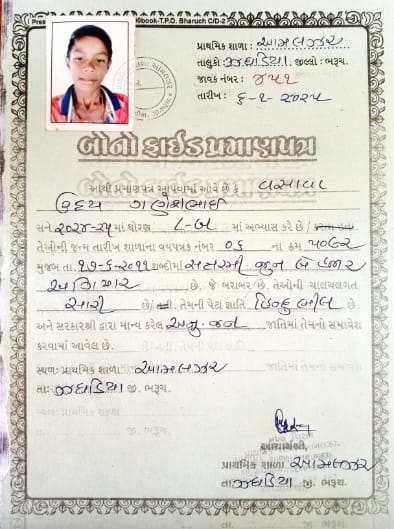 પ્રાથમિક શાળા: આમલઝર
તાલુકો: ઝઘડિયા જીલ્લો: ભરૂચ.
જાવક નંબર: ૪૫૧
તારીખ: ૬-૧-૨૦૨૫
બોનોફાઈડ પ્રમાણપત્ર
આથી પ્રમાણપત્ર આપવામાં આવે છે કે વસાવા
ઉદય ગણેશભાઈ
સને ૨૦૨૪-૨૫ માં ધોરણ ૮-બ માં અભ્યાસ કરે છે /
તેઓની જન્મ તારીખ શાળાના વયપત્રક નંબર ૦૬ ના ક્રમ
મુજબ તા. ૧૭-૬-૨૦૧૧ શબ્દોમાં સત્તરમી જુન બે હજાર
અગિયાર છે. જે બરાબર છે. તેઓની ચાલચલગત
સારી છે/ તેમની પેટા જ્ઞાતિ હિન્દુ ભીલ છે.
અને સરકારશ્રી દ્વારા માન્ય કરેલ અનુ. જન જાતિમાં તેમની સમાવેશ
કરવામાં આવેલ છે.
સ્થળ: પ્રાથમિક શાળા આમલઝર
તા: ઝઘડિયા જી. ભરૂચ.
આચાર્યશ્રી,
પ્રાથમિક શાળા આમલઝર
તા. ઝઘડિયા જી. ભરૂચ.